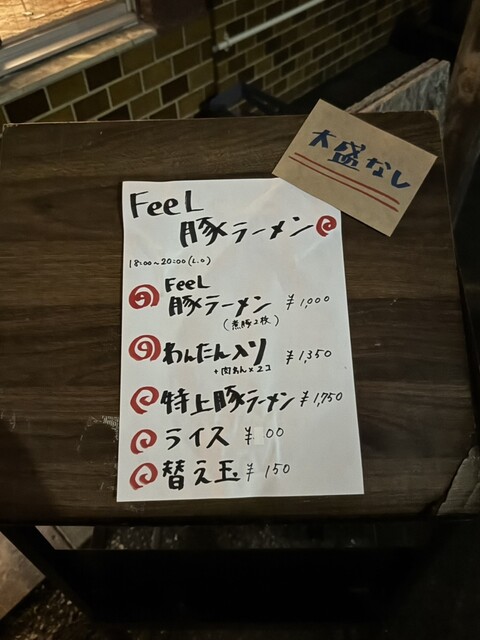 大盛なし
FeeL
豚ラーメン
18:00~20:00(L.O)
FeeL
豚ラーメン ¥1,000
(煮豚2枚)
わんたん入り ¥1,350
+肉わん×2コ
特上豚ラーメン ¥1,750
ライス ¥ 00
替え玉 ¥150